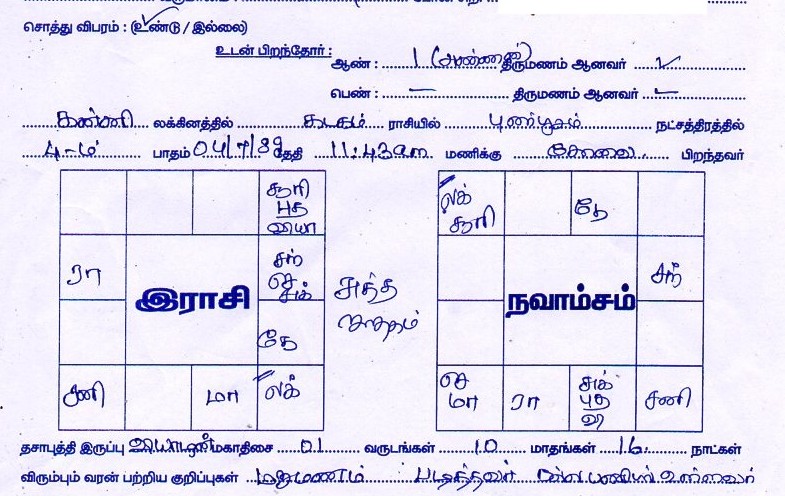 சொத்து விபரம் : (உண்டு / இல்லை)
உடன் பிறந்தோர் : ஆண் : 1 (அண்ணன்) திருமணம் ஆனவர்
பெண் : – திருமணம் ஆனவர் –
கன்னி லக்கினத்தில் கடகம் ராசியில் புணர்பூசம் நட்சத்திரத்தில்
4-ம் பாதம் 04/7/89 தேதி 11:43am மணிக்கு காலை பிறந்தவர்
சூரி
புத
வியா
ரா
சந்
செ
சுக்
கே
சனி
மா
லக்
இராசி
சுத்த
ஜாதகம்
லக்
சூரி
கே
சந்
செ
மா
ரா
சுக்
புத
வி
சனி
நவாம்சம்
தசாபுத்தி இருப்பு வியாழன் மகாதிசை 01 வருடங்கள் 10 மாதங்கள் 16 நாட்கள்
விரும்பும் வரன் பற்றிய குறிப்புகள் மறுமணம் படித்தவர் நல்ல பணியில் உள்ளவர்